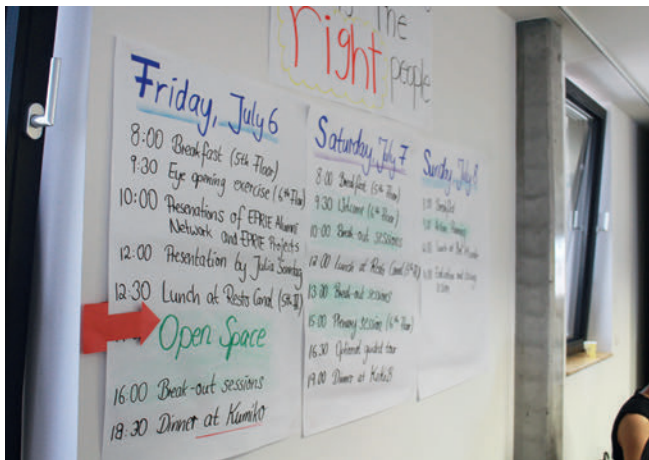 the
right people
Friday, July 6
8:00 Breakfast (5th Floor)
9:30 Eye opening exercise (6th Floor)
10:00 Presenations of EPRIE Alumni
Network and EPRIE Projects
12:00 Presentation by Julia Sonntag
12:30 Lunch at Resto Canal (5th Fl)
Open Space
16:00 Break-out sessions
18:30 Dinner at Kumiko
Saturday, July 7
8:00 Breakfast (5th Floor)
9:30 Welcome (6th Floor)
10:00 Break-out sessions
12:00 Lunch at Resto Canal (5th Fl)
13:00 Break-out sessions
15:00 Plenary session (6th Floor)
16:30 Optional guided tour
19:00 Dinner at
Sunday, July 8
Breakfast
Lunch at
Evaluation and closing
session